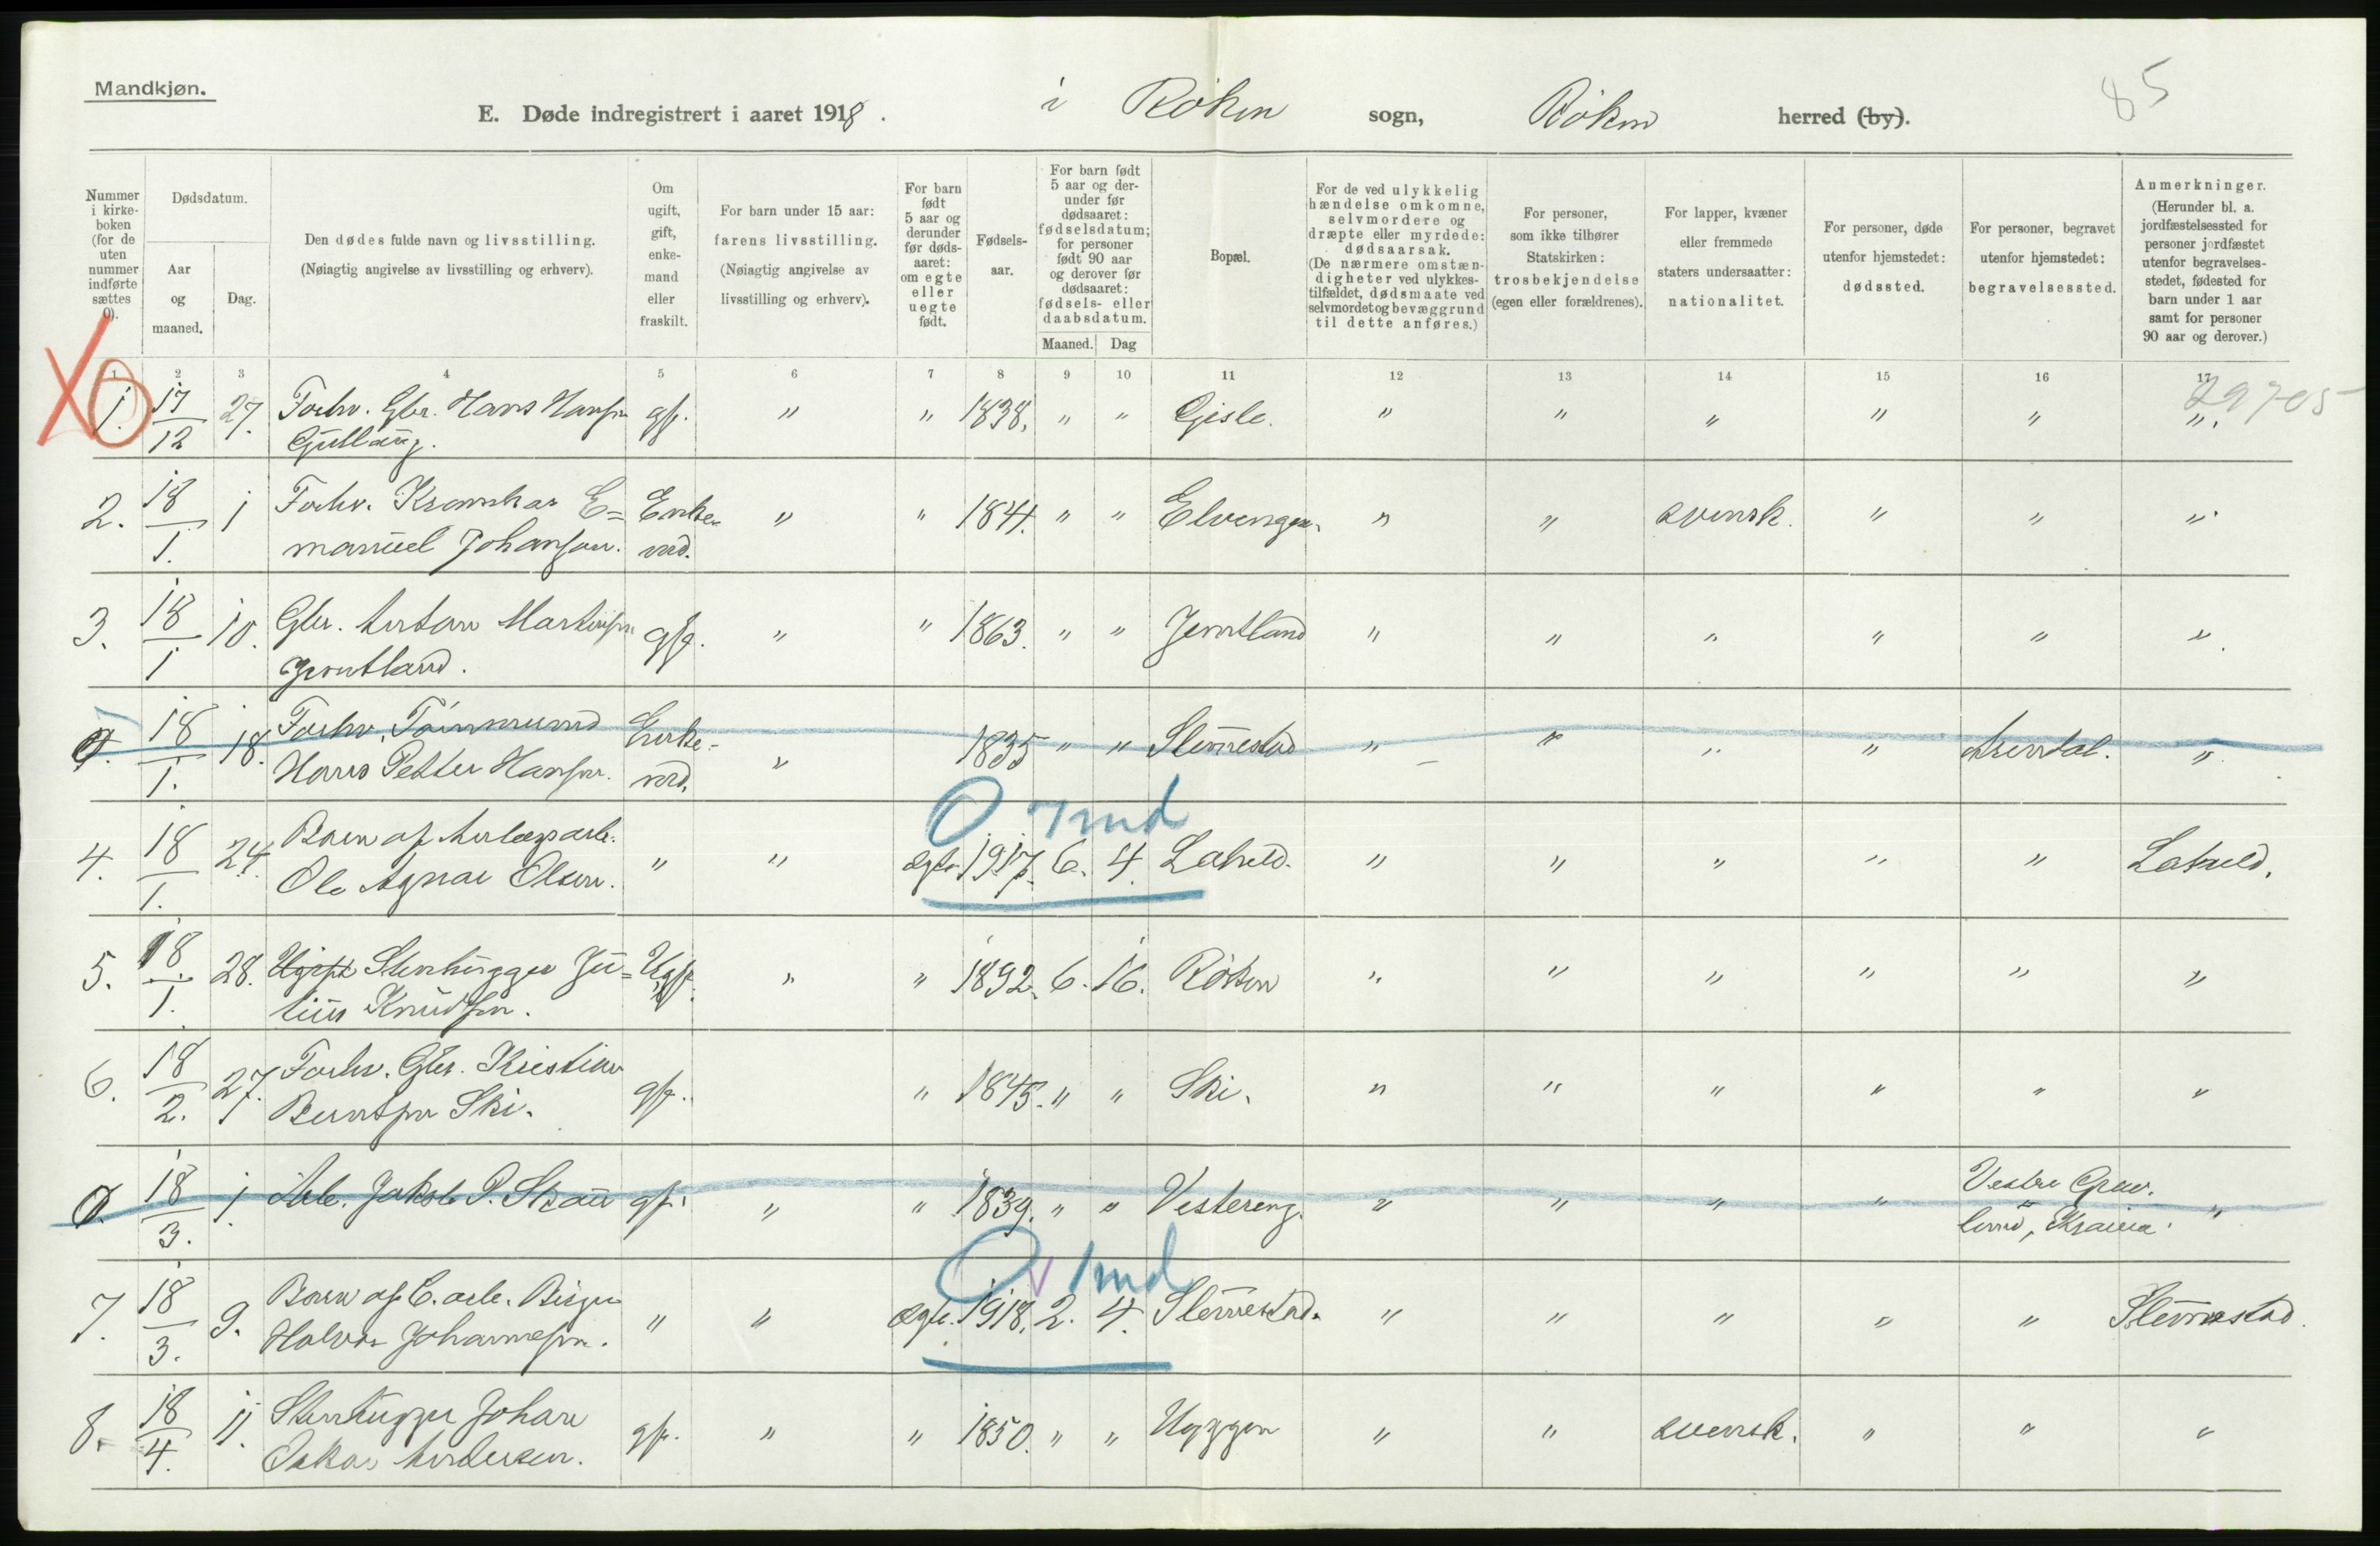 Mandkjøn.
E. Døde indregistrert i aaret 1918. i Røken sogn, Røken herred (by).
85
Nummer i kirkeboken (for de uten nummer indførte sættes 0).
Dødsdatum.
Aar og maaned.
Dag.
Den dødes fulde navn og livsstilling.
(Nøiagtig angivelse av livsstilling og erhverv).
Om ugift, gift, enkemand eller fraskilt.
For barn under 15 aar: farens livsstilling.
(Nøiagtig angivelse av livsstilling og erhverv).
For barn født 5 aar og derunder før dødsaaret: om egte eller uegte født.
Fødselsaar.
For barn født 5 aar og derunder før dødsaaret: fødselsdatum; for personer født 90 aar og derover før dødsaaret: fødsels- eller daabsdatum.
Maaned. Dag
Bopæl.
For de ved ulykkelig hændelse omkomne, selvmordere og dræpte eller myrdede: dødsaarsak.
(De nærmere omstændigheter ved ulykkestilfældet, dødsmaate ved selvmordet og bevæggrund til dette anføres.)
For personer, som ikke tilhører Statskirken: trosbekjendelse (egen eller forældrenes).
For lapper, kvæner eller fremmede staters undersaatter: nationalitet.
For personer, døde utenfor hjemstedet: dødssted.
For personer, begravet utenfor hjemstedet: begravelsessted.
Anmerkninger.
(Herunder bl. a. jordfæstelsessted for personer jordfæstet utenfor begravelsesstedet, fødested for barn under 1 aar samt for personer 90 aar og derover.)
1 2 3 4 5 6 7 8 9 10 11 12 13 14 15 16 17
29705
1. 17/12 27. Forhv. Gbr. Hans Hansen gft. " " 1838. " " Gisle. " " " " " "
Gullaug.
2. 18/1. 1 Forhv. Kramkar E= Enke= " " 1841. " " Elvengen. " " svensk. " " "
manuel Johansen. md.
3. 18/1 10. Gbr. Anton Martinsen gft. " " 1863. " " Jerntland " " " " " "
Jerntland.
0. 18/1. 18. Forhv. Tømmermd Enke- " 1835 " " Slemmestad " " " " Arendal. "
Hans Petter Hansen. md.
0 7 md
4. 18/1. 24. Barn af Anlægsarb. " " ægte 1917. 6. 4. Lahell. " " " " " Lahell.
Ole Agnar Olsen.
5. 18/1. 28. Ugift Stenhugger Ju= Ugft. " " 1892. 6. 16. Røken " " " " " "
lius Knudsen.
6. 18/2. 27. Forhv. Gbr. Kristian gft. " " 1845. " " Ski. " " " " " "
Berntsen Ski.
0. 18/3. 1. Arb. Jakob P. Skau gft. " " 1839. " " Vestereng. " " " " Vestre Grav. "
lund, Kraiia.
0 1 md
7. 18/3. 9. Barn af C. arb. Birger " " ægte. 1918. 2. 4. Slemmestad. " " " " " Slemmestad.
Halvor Johannesen.
8. 18/4. 11. Stenhugger Johan gft. " " 1850. " " Hyggen " " svensk. " " "
Oskar Andersen.